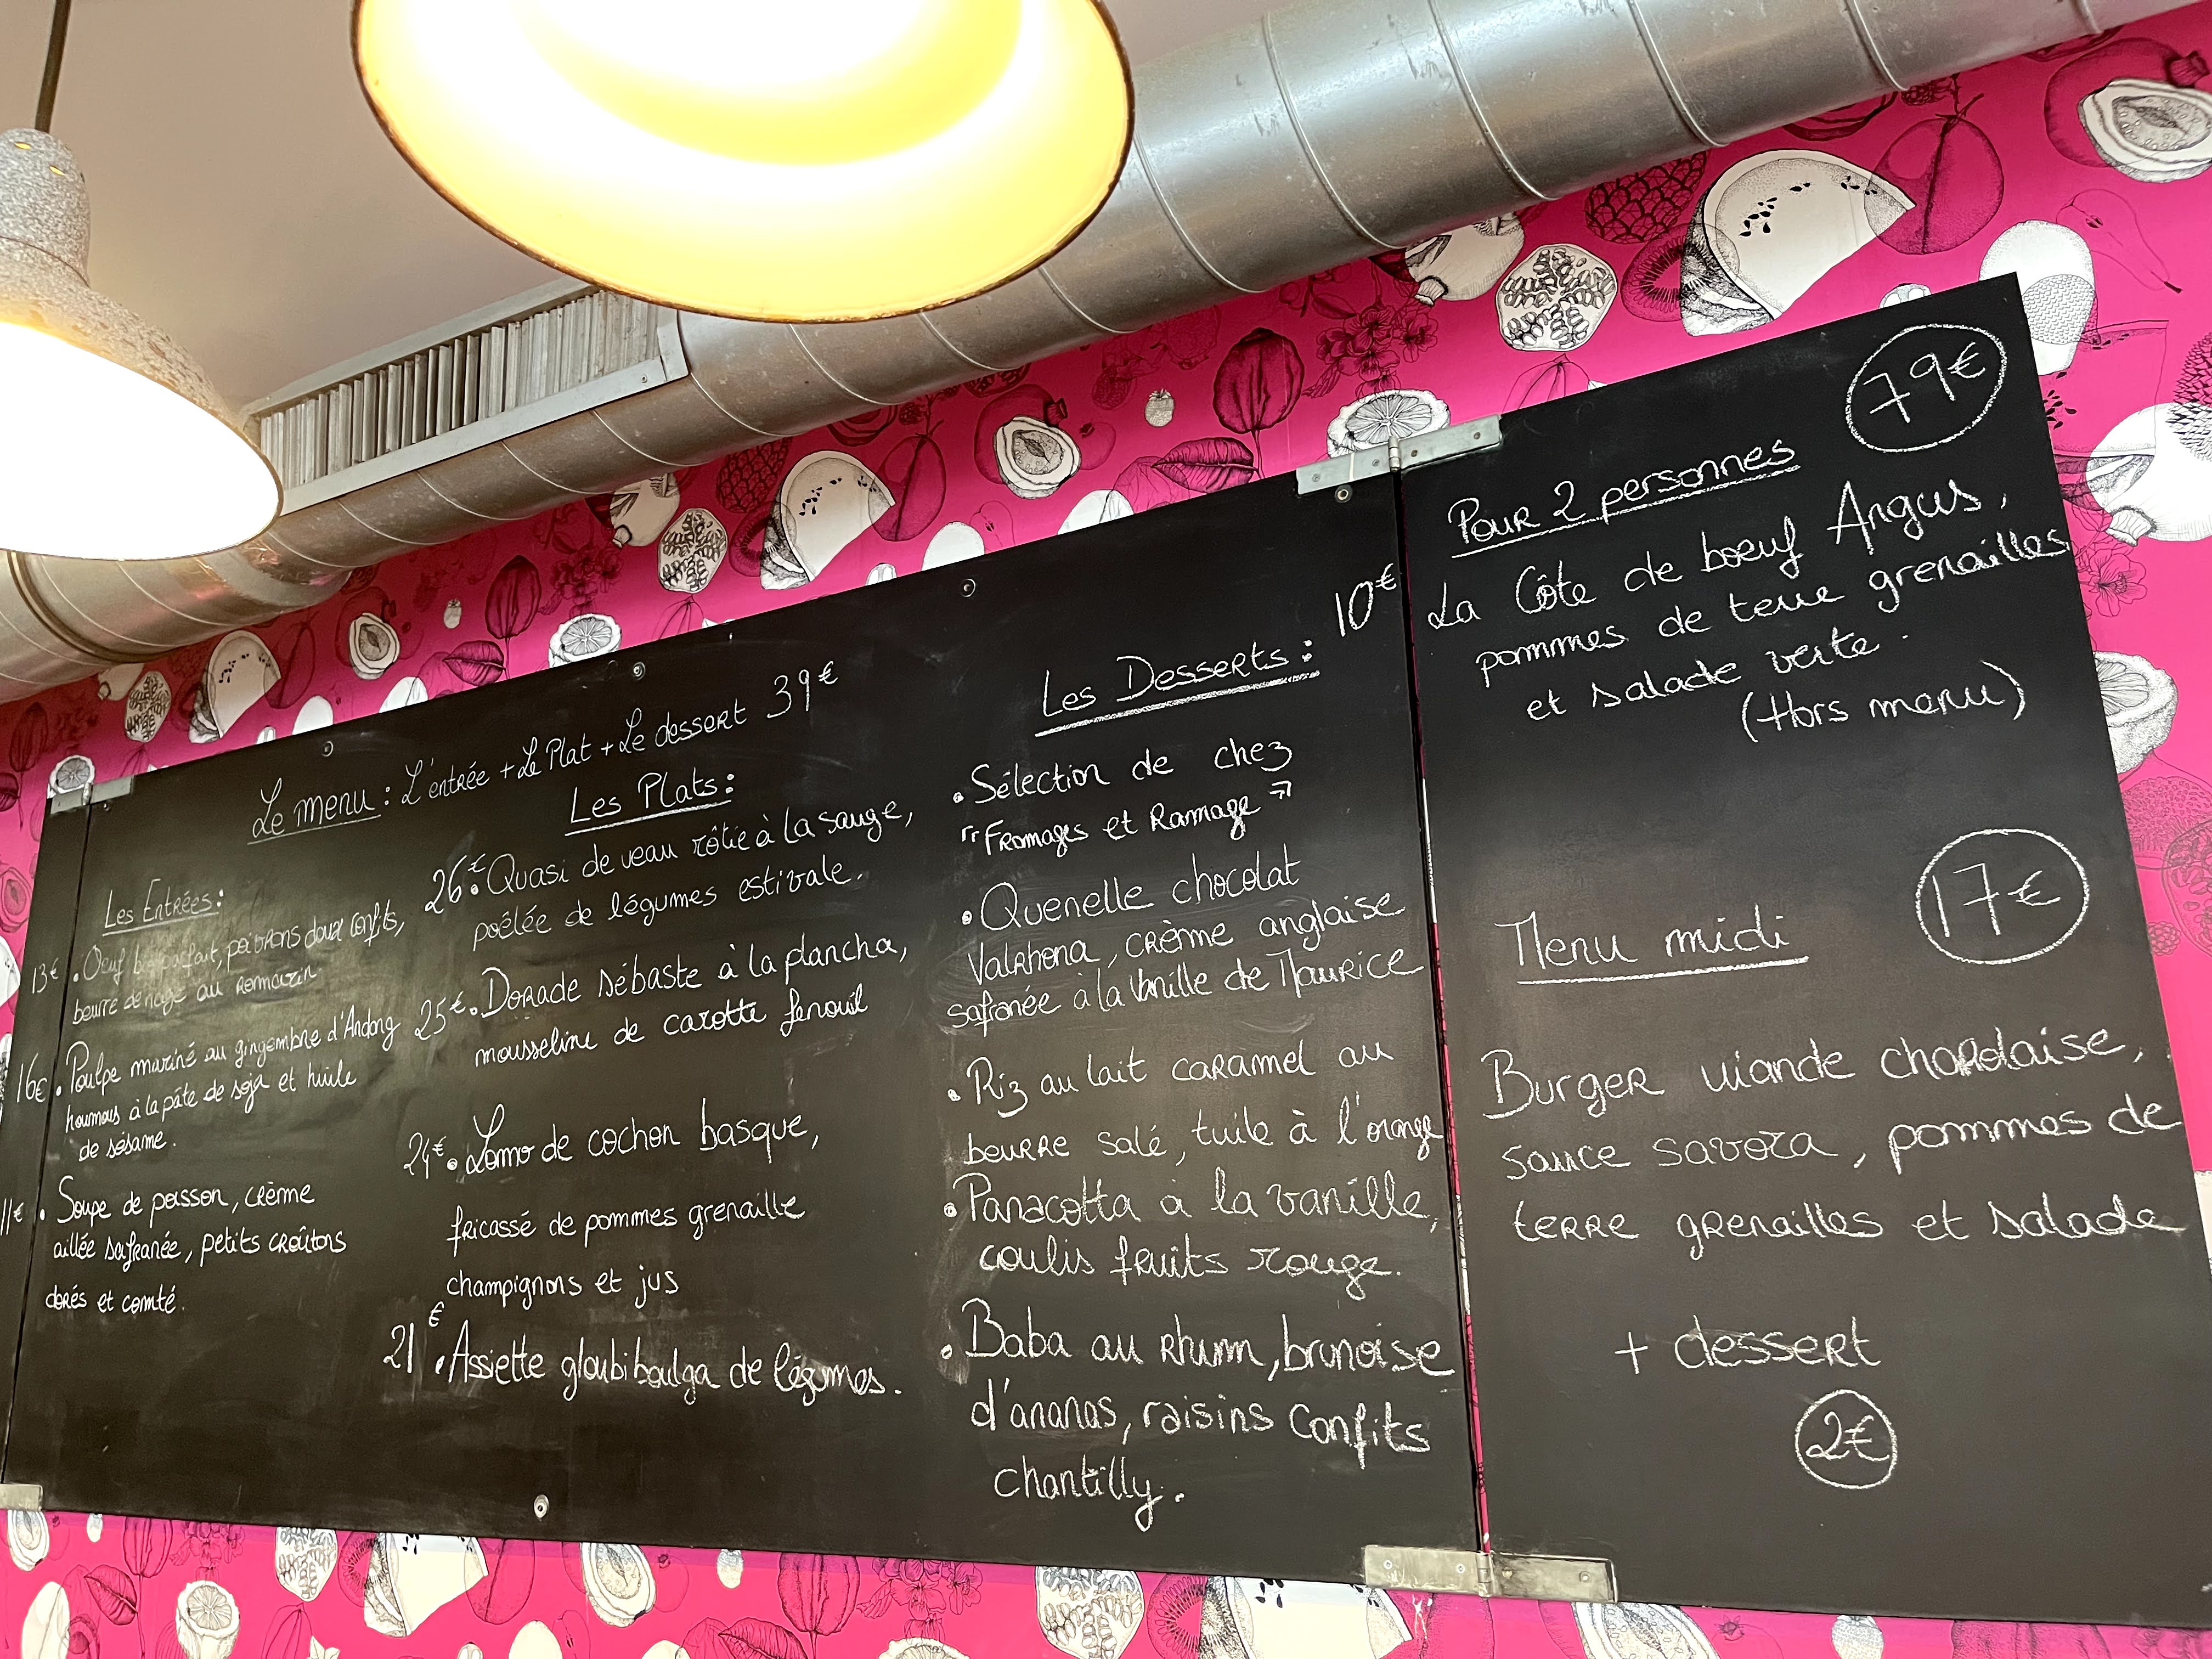 Le menu : L'entrée + Le Plat + Le dessert 39€
Les Entrées :
13€ . Oeuf parfait, poivrons doux confits,
beurre de nage au romarin
16€ . Poulpe mariné au gingembre d'Andong
houmous à la pâte de soja et huile
de sésame.
11€ . Soupe de poisson, crème
aillée safranée, petits croûtons
dorés et comté.
Les Plats :
26€ . Quasi de veau rôtie à la sauge,
poêlée de légumes estivale.
25€ . Dorade sébaste à la plancha,
mousseline de carotte fenouil
24€ . Lomo de cochon basque,
fricassé de pommes grenaille
champignons et jus
21€ . Assiette gloubiboulga de légumes.
Les Desserts : 10€
. Sélection de chez
"Fromages et Ramage"
. Quenelle chocolat
Valrhona, crème anglaise
safranée à la Vanille de Maurice
. Riz au lait caramel au
beurre salé, tuile à l'orange
. Panacotta à la vanille,
coulis fruits rouge.
. Baba au rhum, brunoise
d'ananas, raisins confits
chantilly.
79€
Pour 2 personnes
La Côte de boeuf Angus,
pommes de terre grenailles
et salade verte.
(Hors menu)
17€
Menu midi
Burger viande charolaise,
sauce savora, pommes de
terre grenailles et salade
+ dessert
2€